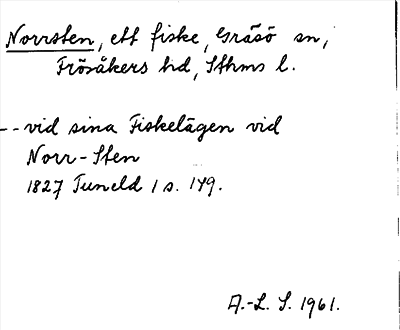 Norrsten, ett fiske, Gräsö sn,
Frösåkers hd, Sthms l.
-- vid sina Fiskelägen vid
Norr-Sten
1827 Tuneld 1 s. 149.
A.-L. S. 1961.